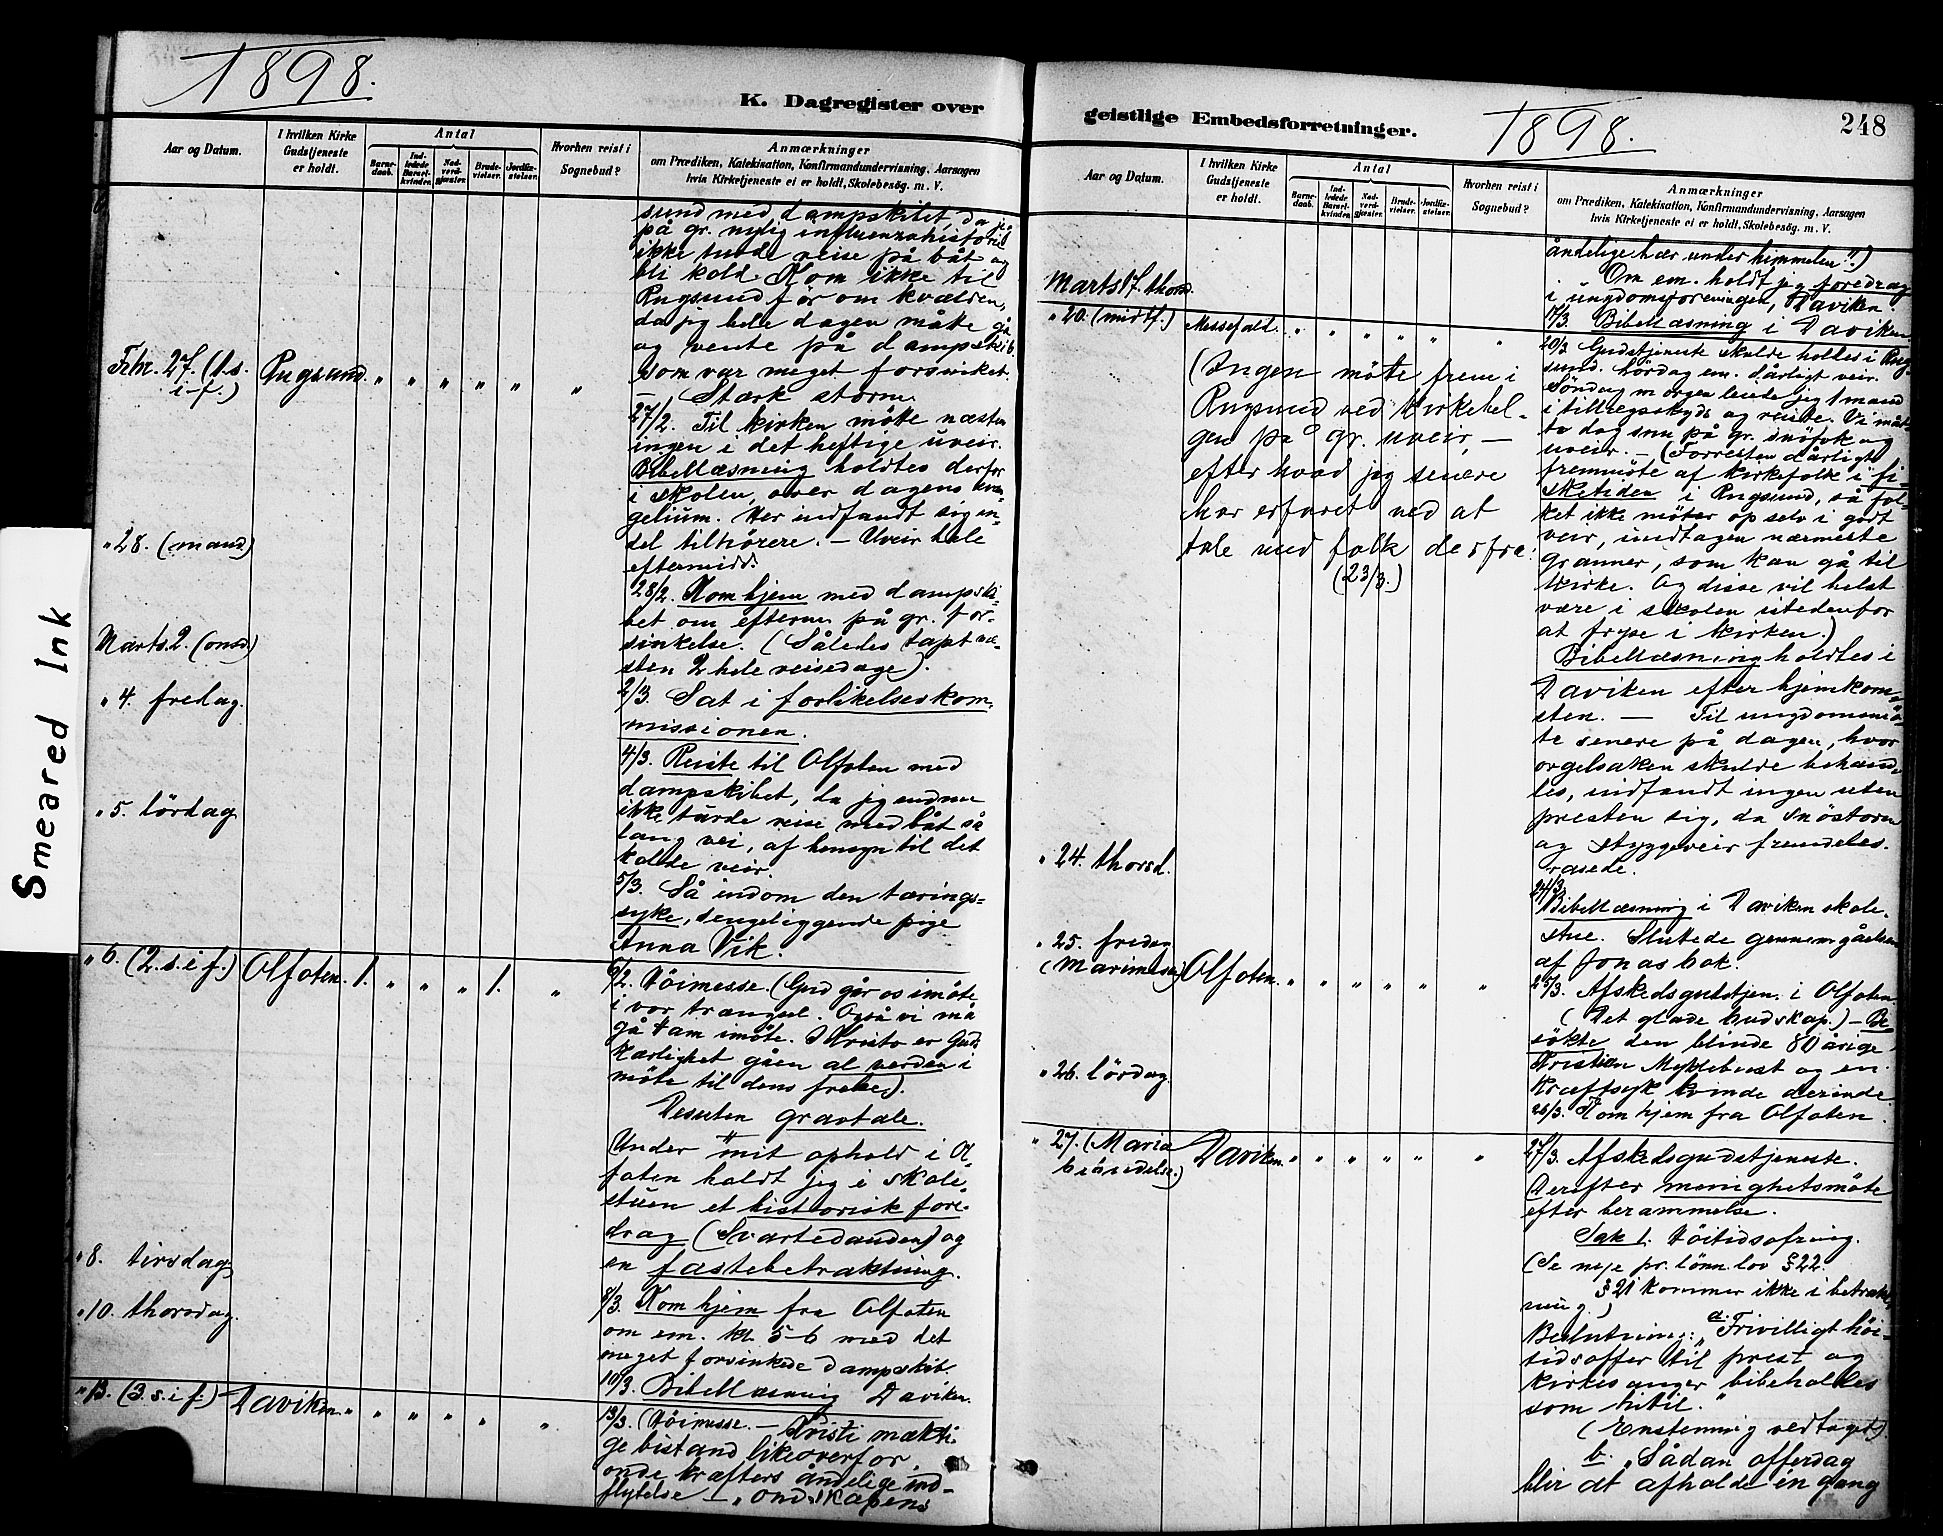 1898.
K. Dagregister over
Aar og Datum.
I hvilken Kirke
Gudstjeneste
er holdt.
Antal
Barne-
daab.
Ind-
ledede
Barsel-
kvinder.
Nad-
verd-
gjæster.
Brude-
vielser.
Jordfæ-
stelser.
Hvorhen reist i
Sognebud?
Anmærkninger
om Prædiken, Katekisation, Konfirmandundervisning, Aarsagen
hvis Kirketjeneste ei er holdt, Skolebesøg. m. V.
sund med dampskibet, da jeg
på gr. nylig influenzahistorie
ikke turde reise på båt og
bli kold. Kom ikke til
Rugsund för om kvælden,
da jeg hele dagen måtte gå
og vente på dampskib.
som var meget forsinket.
— Stærk storm.
Febr. 27. (1.s.
i f.)
Rugsund. " " " " " "
27/2. Til kirken mötte næsten
ingen i det heftige uveir.
Bibellæsning holdtes derfor
i skolen, over dagens evan-
gelium. Her indfandt sig en-
del tilhörere. — Uveir hele
eftermidd.
" 28. (mand)
28/2. Kom hjem med dampski-
bet om efterm. på gr. for-
sinkelse. (Således tapt næ-
sten 2 hele reisedage).
Marts. 2. (onsd.)
2/3. Sat i forlikelseskom-
missionen.
" 4. fredag.
4/3. Reiste til Olfoten med
dampskibet, da jeg endnu
ikke turde reise med båt så
lang vei, af hensyn til det
kolde veir.
" 5. lördag
5/3. Så indom den tærings-
syke, sengeliggende pige
Anna Vik.
" 6. (2. s. i f.) Olfoten. 1. " " " 1. "
6/2. Höimesse. (Gud går os imöte
i vor trængsel. Også vi må
gå ham imöte. I Kristo er Guds
kærlighet gåen al verden i
möte til dens frelse).
Desuten gravtale.
Under mit ophold i Ol-
foten holdt jeg i skole-
stuen et historisk fore-
drag (Svartedauden) og
en fastebetraktning.
" 8. tirsdag
8/3. Kom hjem fra Olfoten
om em. kl. 5-6 med det
meget forsinkede dampskib.
" 10. thorsdag.
10/3. Bibellæsning Daviken.
" 13. (3. s. i f.) Daviken. " " " " " "
13/3. Höimesse. — Kristi mækti-
ge bistand likeoverfor
onde kræfters åndelige ind-
flytelse — "ondskapens
geistlige Embedsforretninger.
1898.
248
Aar og Datum.
I hvilken Kirke
Gudstjeneste
er holdt.
Antal
Barne-
daab.
Ind-
ledede
Barsel-
kvinder.
Nad-
verd-
gjæster.
Brude-
vielser.
Jordfæ-
stelser.
Hvorhen reist i
Sognebud?
Anmærkninger
om Prædiken, Katekisation, Konfirmandundervisning, Aarsagen
hvis Kirketjeneste ei er holdt, Skolebesøg. m. V.
åndelige hær under himmelen".)
Om em. holdt jeg foredrag
i ungdomsforeningen, Daviken.
Marts 17. thorsd.
17/3. Bibellæsning i Daviken.
" 20. (midtf.) Messefald. " " " " " "
(Ingen mötte frem i
Rugsund ved kirkehel-
gen på gr. uveir, —
efter hvad jeg senere
har erfaret ved at
tale med folk derfra.
(23/3.)
20/3 Gudstjeneste skulde holdes i Rug-
sund. Lördag em. dårligt veir.
Söndag morgen leiet jeg 1 mand
i tillægsskyds og reiste. Vi måt-
te dog snu på gr. snöfok og
uveir. — (Forresten dårligt
fremmöte af kirkefolk i fi-
sketiden i Rugsund, så fol-
ket ikke möter op selv i godt
veir, undtagen nærmeste
granner, som kan gå til
kirke. Og disse vil helst
være i skolen istedenfor
at fryse i kirken.)
Bibellæsning holdtes i
Daviken efter hjemkom-
sten. — Til ungdomsmö-
te senere på dagen, hvor
orgelsaken skulde behand-
les, indfandt ingen uten
presten sig, da snöstorm
og styggeveir fremdeles
rasede.
" 24. thorsd.
24/3. Bibellæsning i Daviken skole-
stue. Sluttede gennemgåelsen
af Jonas bok.
" 25. fredag
(Marimesse) Olfoten. " " " " " "
25/3. Afskedsgudstjen. i Olfoten
(Det glade budskap.) — Be-
sökte den blinde 80 årige
Kristian Myklebust og en
kræftsyk kvinde derinde.
" 26. lördag.
26/3. Kom hjem fra Olfoten.
" 27. (Maria
bebudelse.) Daviken. " " " " " "
27/3. Afskedsgudstjeneste.
Derefter menighetsmöte
efter berammelse.
Sak 1. Höitidsofring.
(Se nye pr. lönn. lov § 22.
§ 21 kommer ikke i betrakt-
ning.)
Beslutning: "a. Frivilligt höi-
tidsoffer til prest og
kirkesanger bibeholdes
som hitil."
(Enstemmig vedtaget)
b. "Sådan offerdag
blir at afholde én gang
Smeared Ink